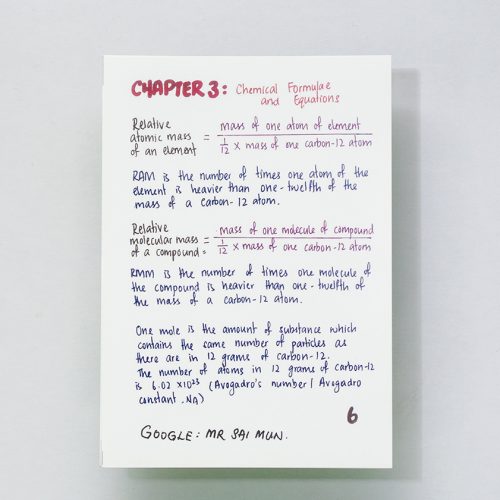 CHAPTER 3: Chemical Formulae
and Equations
Relative
atomic mass
of an element = mass of one atom of element
1/12 x mass of one carbon-12 atom
RAM is the number of times one atom of the
element is heavier than one-twelfth of the
mass of a carbon-12 atom.
Relative
molecular mass
of a compound = mass of one molecule of compound
1/12 x mass of one carbon-12 atom
RMM is the number of times one molecule of
the compound is heavier than one-twelfth of
the mass of a carbon-12 atom.
One mole is the amount of substance which
contains the same number of particles as
there are in 12 grams of carbon-12.
The number of atoms in 12 grams of carbon-12
is 6.02 x10²³ (Avogadro's number / Avogadro
constant, NA)
6
GOOGLE: MR SAI MUN.